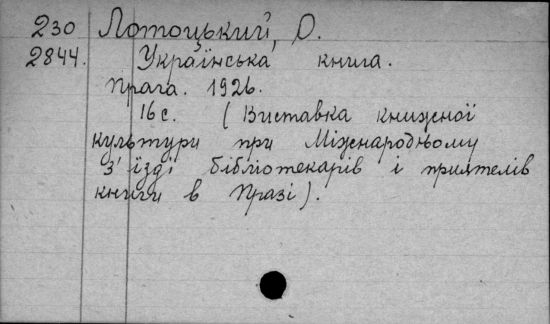 230 Лотоцький, О.
2844. Українська книга.
Прага. 1926.
16 с. (Виставка книжної
культури при Міжнародньому
з'їзді бібліотекарів і приятелів
книги в Празі).